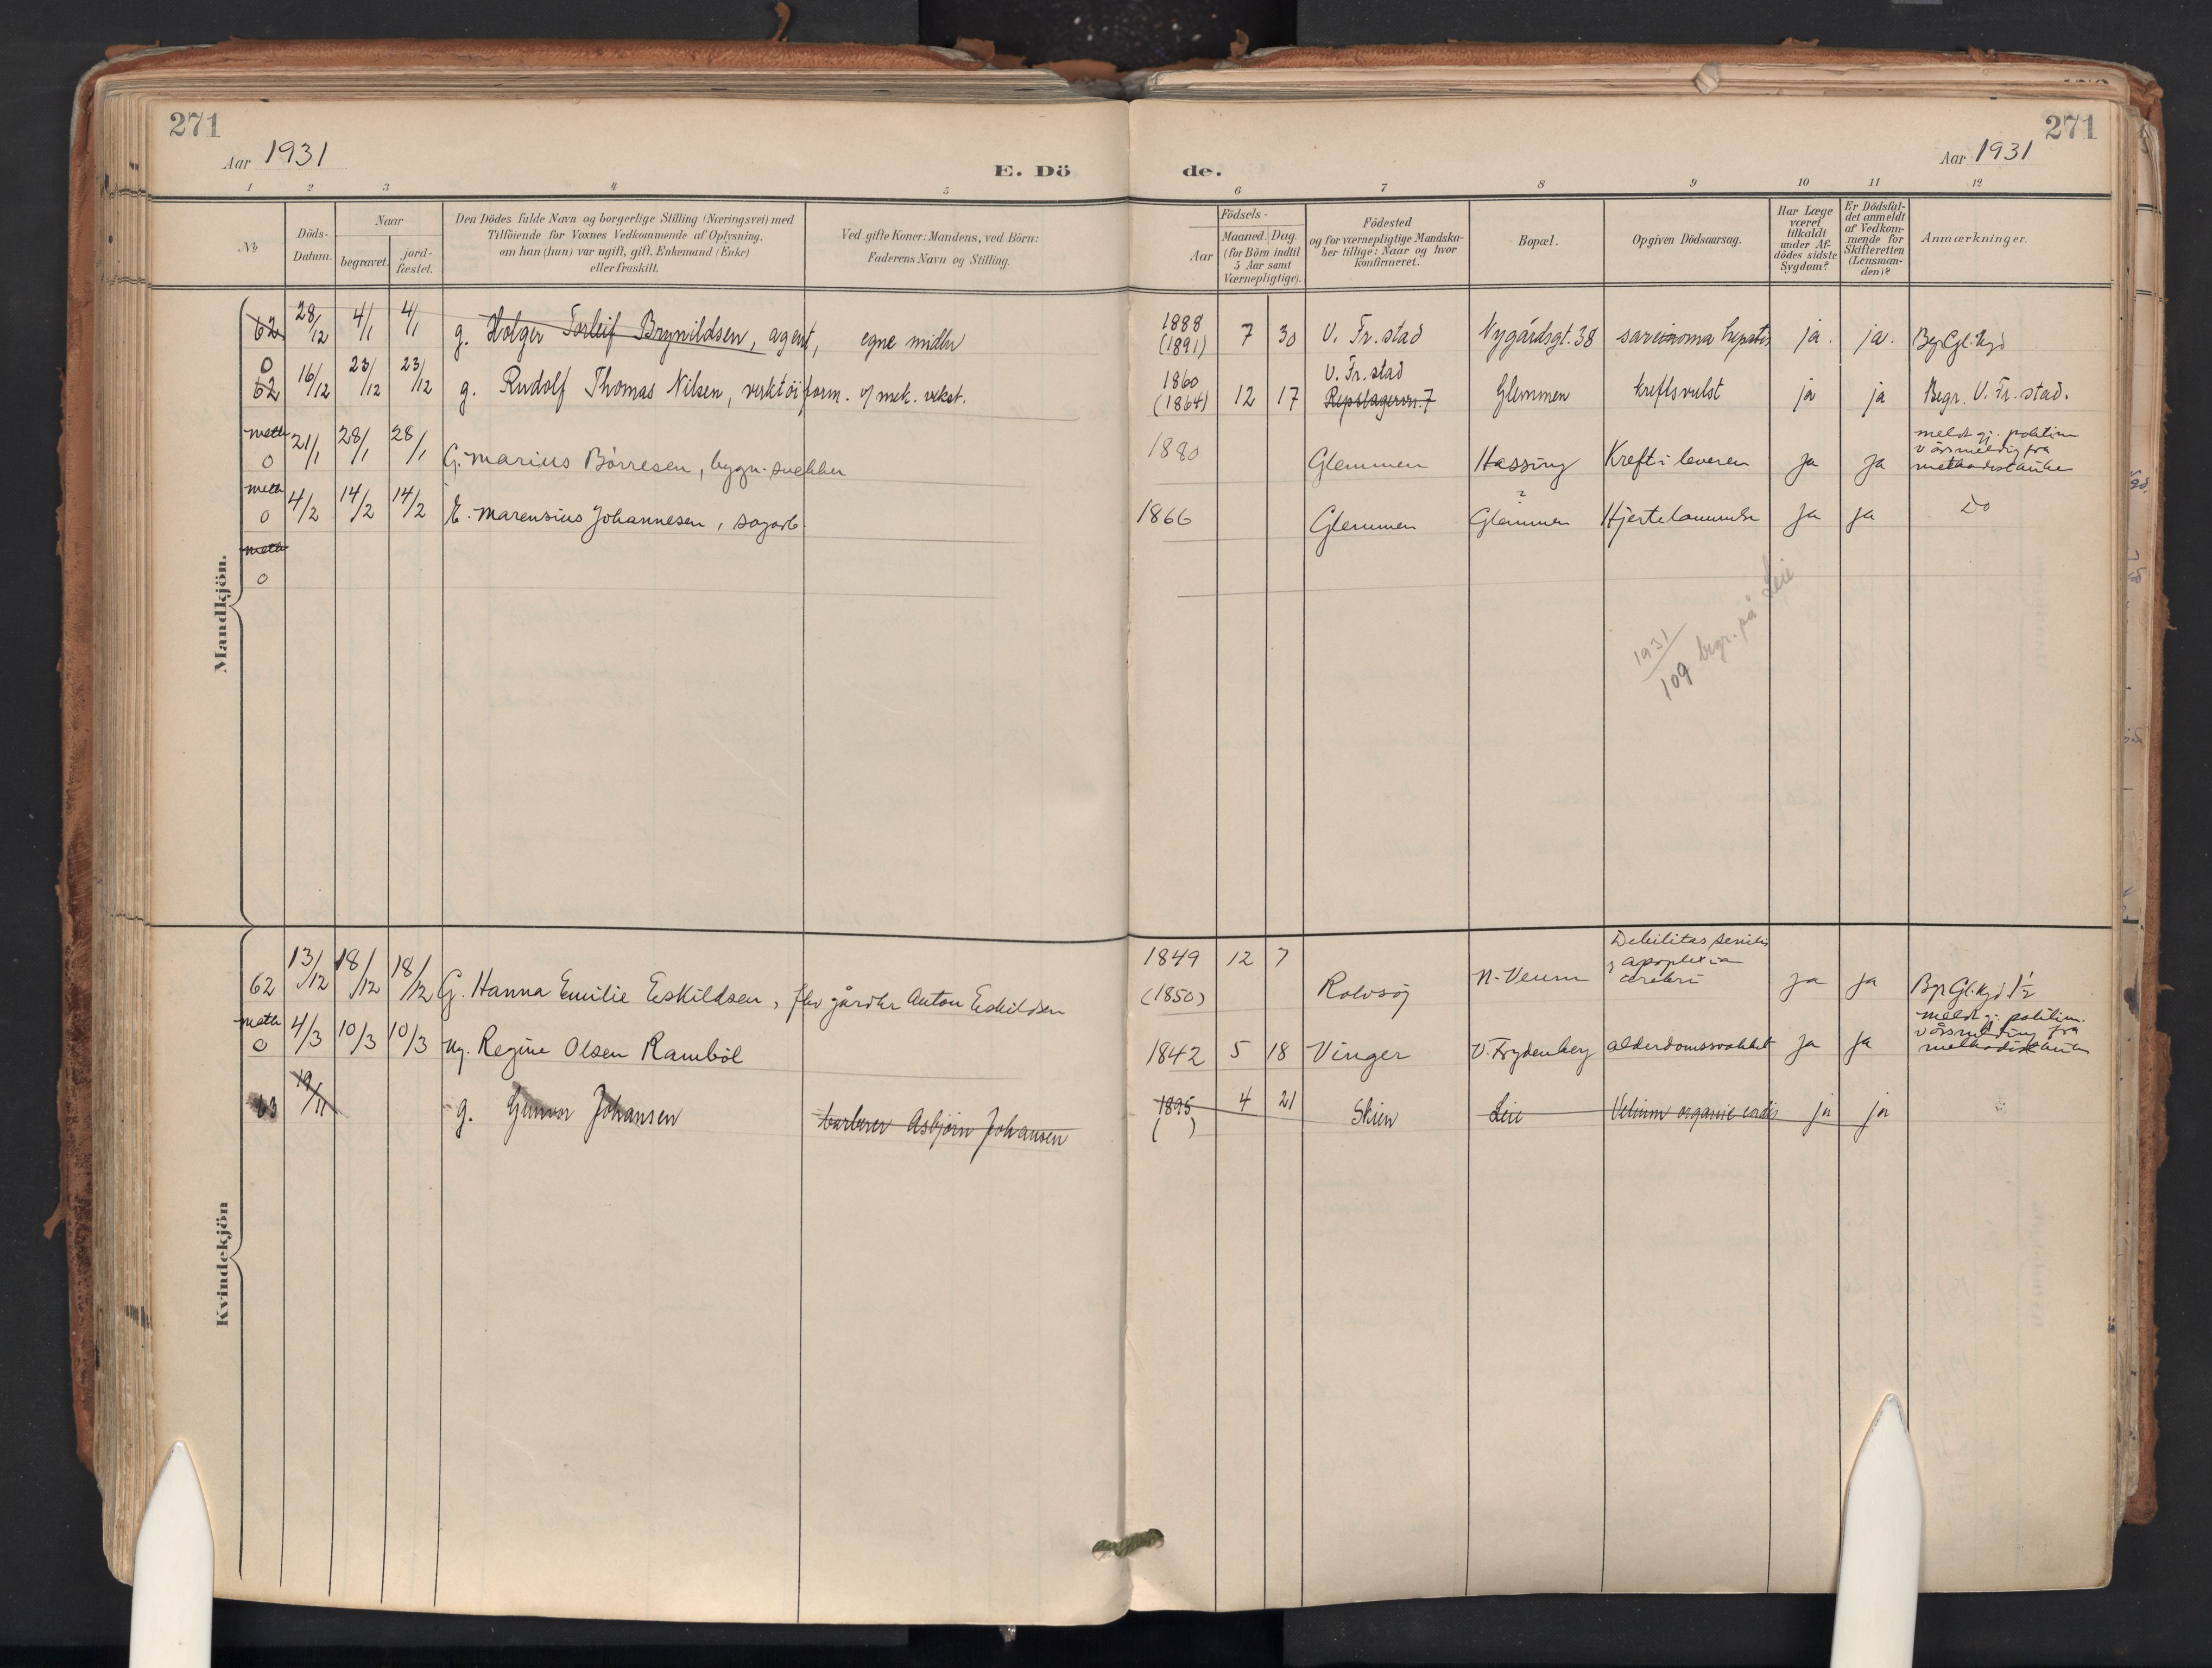 271
271
Aar 1931
Aar 1931
E. Dö
de.
1 2 3 4 5 6 7 8 9 10 11 12
No
Döds-
Datum.
Naar
begravet.
jord-
fæstet.
Den Dödes fulde Navn og borgerlige Stilling (Næringsvei) med
Tilföiende for Voxnes Vedkommende af Oplysning,
om han (hun) var ugift, gift, Enkemand (Enke)
eller fraskilt.
Ved gifte Koner: Mandens, ved Börn:
Faderens Navn og Stilling.
Födsels-
Aar
Maaned. Dag.
(for Börn indtil
5 Aar samt
Værnepligtige).
Födested
og for værnepligtige Mandska-
ber tillige: Naar og hvor
konfirmeret.
Bopæl.
Opgiven Dödsaarsag.
Har Læge
været
tilkaldt
under Af-
dödes sidste
Sygdom?
Er Dödsfal-
det anmeldt
af Vedkom-
mende for
Skifteretten
(Lensman-
den)?
Anmærkninger.
Mandkjön.
62 28/12 4/1 4/1 g. Holger Torleif Brynildsen, agent, egne midler 1888 (1891) 7 30 V. Fr. stad Nygårdsgt. 38 sarcinoma hepatis ja. ja. Begr. Gl. kgd
0
62 16/12 23/12 23/12 g. Rudolf Thomas Nilsen, verktöiform. v/ mek. vekst. 1860 (1864) 12 17 V. Fr. stad Repslagervn. 7 Glemmen kreftsvulst ja ja Begr. V. Fr. stad.
meth
0 21/1 28/1 28/1 G. Marius Börresen, bygn. snekker 1880 Glemmen Hassing Kreft i leveren ja ja meldt gj. politim
dösmelding fra
methodistkirke
meth
0 4/2 14/2 14/2 E. Marensius Johannesen, sagarb. 1866 Glemmen ? Glemmen Hjertelammelse ja ja Do
meth
0
1931/109 begr. på Leie
Kvindekjön
62 13/12 18/12 18/12 G. Hanna Emilie Eskildsen, fhv gårdbr Anton Eskildsen 1849 (1850) 12 7 Rolvsöj N. Veum Debilitas senilis
& apoplexia
cerebri ja ja Bgr Gl. kgd
meth
0 4/3 10/3 10/3 ug. Regine Olsen Ramböl 1842 5 18 Vinger V. Frydenberg alderdomssvakhet ja ja meldt gj. politim.
dösmelding fra
methodistkirken
63 19/11 g. Gunvor Johansen barberer Asbjörn Johansen 1895 ( ) 4 21 Skien Leie Vitium organic cordis ja ja